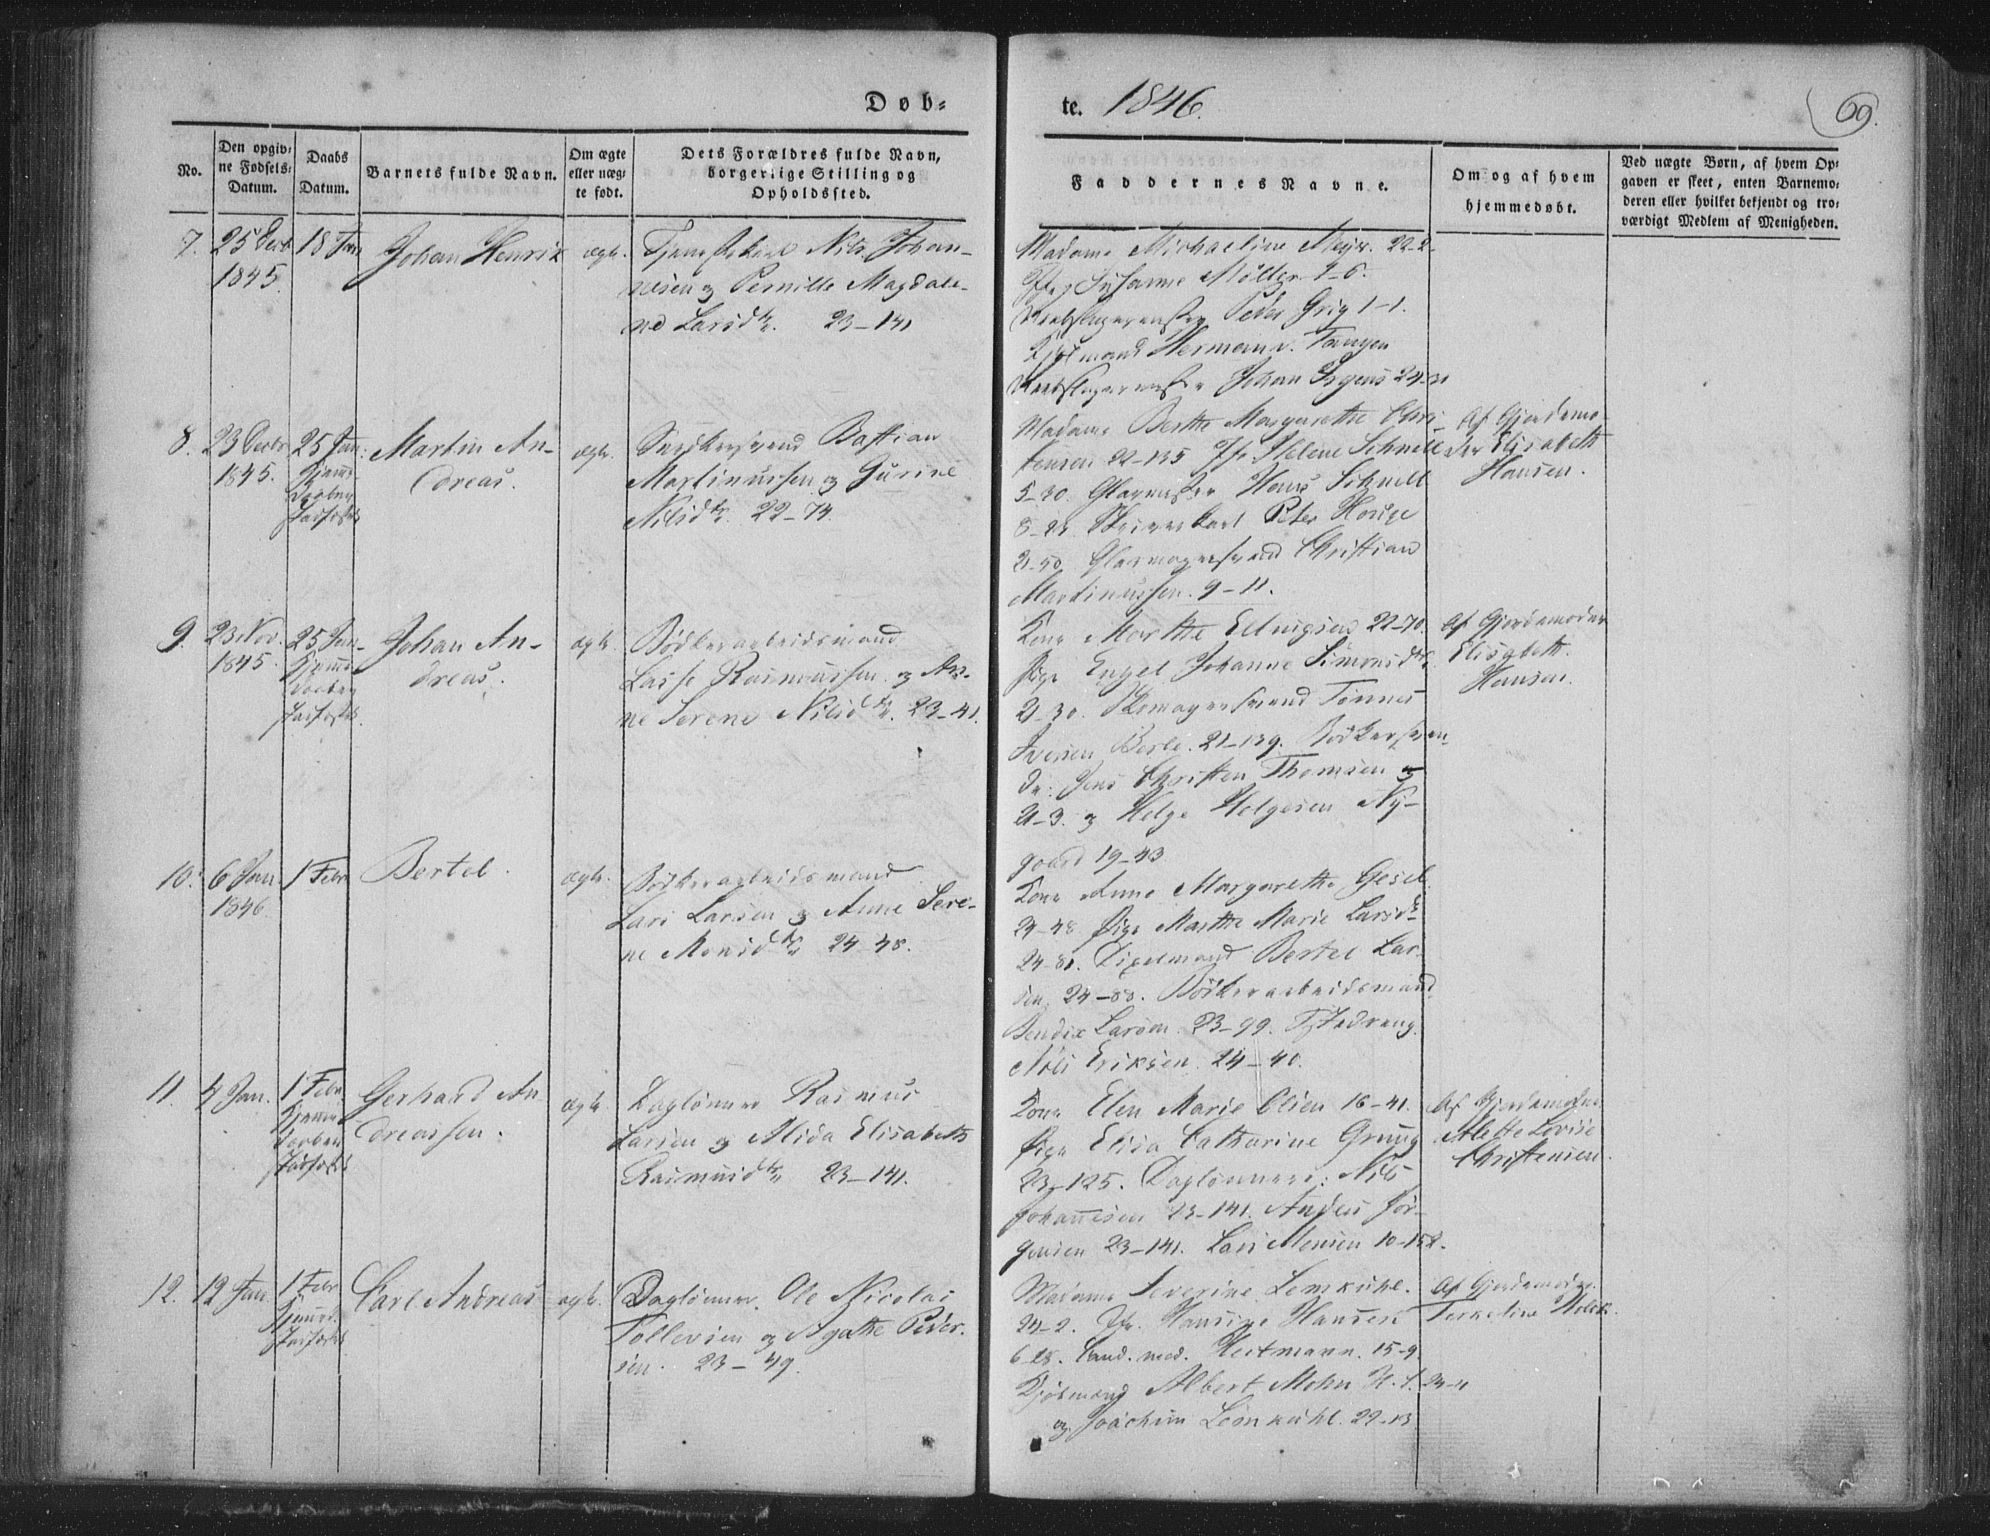 Døb=
te. 1846.
69.
No.
Den opgiv=
ne Fødsels=
Datum.
Daabs
Datum.
Barnets fulde Navn.
Om ægte
eller uæg=
te født.
Dets Forældres fulde Navn,
borgerlige Stilling og
Opholdssted.
Faddernes Navne.
Om og af hvem
hjemmedøbt.
Ved uægte Børn, af hvem Op=
gaven er skeet, enten Barnemo=
deren eller hvilket bekjendt og tro=
værdigt Medlem af Menigheden.
7.
25 Decbr
1845.
18 Jan
Johan Henrik
ægte.
Nils Johan-
nesen og Pernille Magdale-
ne Larsdtr. 23-141
Madame Michaeline Meyer. 22-2.
Susanne Möller 9-6.
Peder Grig 1-1.
Hermann v. Tangen
Johan Irgens 24-
8.
23 Decbr
1845.
25 Jan.
Hjemme-
daaben
stadfæstet
Martin An-
dreas.
ægte.
Bastian
Martinussen og Gurine
Nilsdtr. 22-74.
Madame Berthe Margarethe Chri-
stensen 22-135 Jfr. Helene Schnell
5-30. Glarmester Hans Schnell
Peter Houge
Christian
Martinussen. 9-11.
Af Gjordemo-
der Elisabeth
Hansen.
9.
23 Nov.
1845.
25 Jan.
Hjemme-
daaben
stadfæstet.
Johan An-
dreas.
ægte.
Bødkerarbeidsmand
Lasse Rasmussen og An-
ne Serene Nilsdtr. 23-41.
Kone Marthe Ellingsen 22-70.
Pige Engel Johanne Simonsdtr.
2-30. Skomagersvend Tønnes
Iversen Berle. 21-139. Bødkersven-
de: Jens Christen Thomsen
21-3. og Helge Helgesen Ny-
gaard 19-43
Af Gjordemoder
Elisabeth
Hansen.
10.
6 Jan
1846.
1 Febr
Bertel.
ægte.
Bødkerarbeidsmand
Lars Larsen og Anne Sere-
ne Monsdtr. 24-48.
Kone Anne Margarethe Gesel.
24-48. Pige Marthe Marie Larsdtr
24-80. Bertel Lar-
sen, 24-88. Bødkerarbeidsmand
Bendix Larsen. 23-99.
Nils Eriksen. 24-40.
11.
4 Jan.
1 Febr
Hjemme-
daaben
stadfæstet
Gerhard An-
dreassen.
ægte.
Daglønner Rasmus
Larsen og Alida Elisabeth
Rasmusdtr. 23-141.
Kone Elen Marie Olsen 16-41.
Pige Elisa Catharine Grung
23-125. Daglønnere: Nils
Johannesen 23-141. Anders Jör-
gensen 23-141. Lars Monsen 10-152.
Af Gjordemoder
Alette Lovise
Christensen.
12.
12 Jan
1 Febr
Hjemmed.
stadfæstet
Carl Andreas
ægte.
Daglønner Ole Nicolai
Tollevsen og Agathe Peder-
sen. 23-49.
Madame Severine Lemkuhl.
24-2. Jfr. Hansine Hansen
6-28. Cand. med. Heitmann. 15-9
Kjøbmænd Albert Mohn
og Joachim Lemkuhl. 22-13
Af Gjordemoder
Terkeline